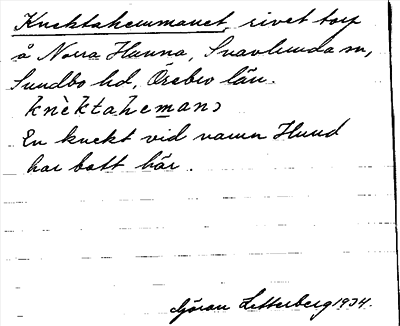 Knektahemmanet, rivet torp
å Norra Hunna, Snavlunda sn,
Sundbo hd, Örebro län.
knèktaheman)
En knekt vid namn Hund
har bott här.
Göran Zetterberg 1934.